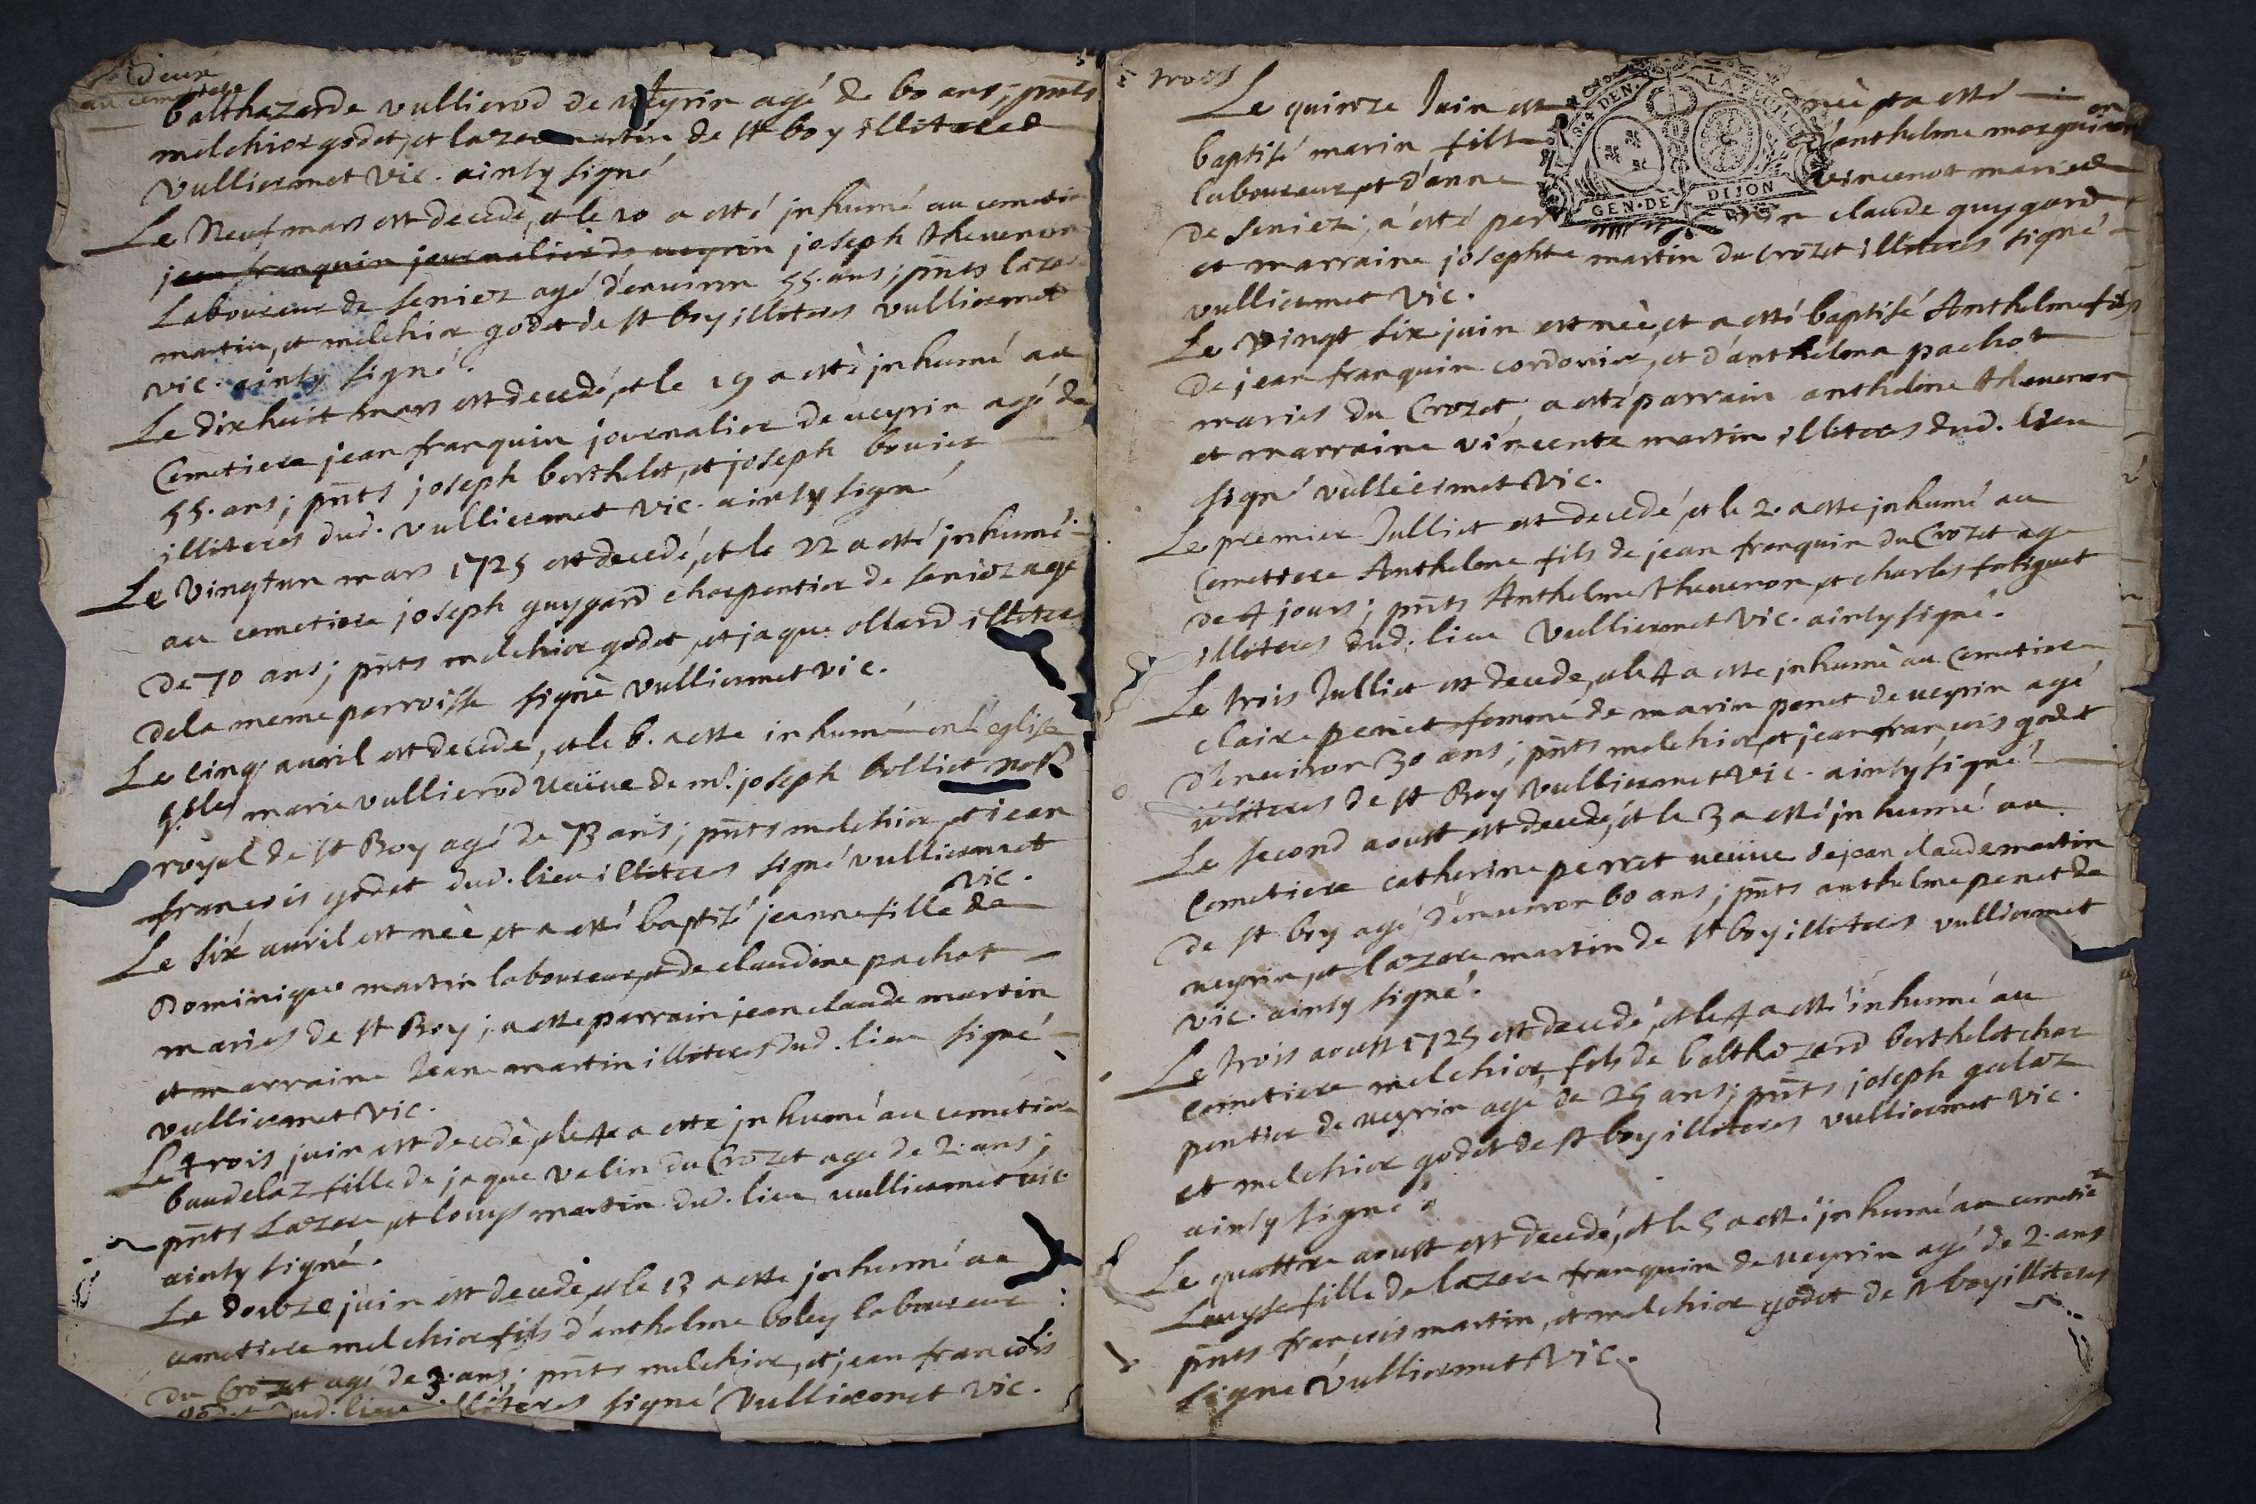 deux
au cemetiere
balthazarde vullierod de veyrin agé de 60 ans; pnts
melchior godet, et lazare martin de st boy illiteres
vulliermet vic. ainsy signé
Le Neuf mars est decedé, et le 10 a esté inhumé au cemetie
jean franquin journalier de veyrin joseph thevenon
Laboureur de seniez agé d'environ 55. ans; pnts lazare
martin, et melchior godet de st boy illiteres vulliermet
vic. ainsy signé.
Le dixhuit mars est decedé, et le 19 a esté inhumé au
Cemetiere jean franquin journalier de veyrin agé de
55. ans; pnts joseph berthelet, et joseph bovier
illiterés dud. vulliermet vic. ainsy signé
Le Vingtun mars 1725 est decedé, et le 22 a esté inhumé
au cemetiere joseph guygard charpentier de seniez agé
de 70 ans; pnts melchior godet, et jaque ollard illitere
de la meme parroisse signé vulliermet vic.
Le cinq avril est decedé, et le 6. a esté inhumé en l'eglise
marie vullierod veüve de mr. joseph bolliet
royal de st Boy agé de 73 ans; pnts melchior, et jean
francois godet dud. lieu illiteres signé vulliermet
vic.
Le six avril est neè, et a esté baptisé jeanne fille de
Dominique martin laboureur, et de claudine pachot
mariés de st Boy; a esté parrain jean claude martin
et marraine Jeane martin illiteres dud. lieu signé
vulliermet vic.
Le trois juin est decedé, et le 4e a esté inhumé au cemetiere
baudelaz fille de jaque velin du Crozet agé de 2. ans;
pnts Lazare, et louys martin dud. lieu vulliermet vic.
ainsy signé.
Le douze juin est decedé, et le 13 a esté inhumé au
cemetiere melchior fils d'anthelme boley laboureur
du Crozet agé de 3. ans; pnts melchior, et jean francois
godet dud. lieu illiteres signé Vulliermet vic.
trois
Le quinze Juin est neè et a esté
baptisé marin fils d'anthelme
laboureur, et d'anne vincenot mariés
de seniez; a esté par claude guygard
et marraine josephte martin du Crozet illiteres signé
vulliermet vic.
Le vingt six juin est neè, et a esté baptisé Anthelme fils
de jean franquin cordonier, et d'anthelma pachot
mariés du Crozet; a esté parrain anthelme thevenon
et marraine vincente martin illiteres dud. lieu
signé vulliermet vic.
Le premier Julliet est decedé, et le 2. a esté inhumé au
Cemetiere Anthelme fils de jean franquin du Crozet agé
de 4 jours; pnts Anthelme thevenon, et charles
illiteres dud. lieu Vulliermet vic. ainsy signé.
Le trois Julliet est decede, et le 4 a esté inhumé au Cemetiere
claire penet femme de marin penet de veyrin agé
d'environ 30 ans; pnts melchior, et jean françois godet
illiteres de st Boy Vulliermet vic. ainsy signé.
Le second aoust est decedé, et le 3 a esté inhumé au
Cemetiere catherine perret veüve de jean claude martin
de st boy agé d'environ 60 ans; pnts anthelme penet de
veyrin, et lazare martin de st boy illiteres vulliermet
vic. ainsy signé.
Le trois aoust 1725 est decedé, et le 4 a esté inhumé au
cemetiere melchior fils de balthazard berthelet char
pentier de veyrin agé de 25 ans; pnts joseph
et melchior godet de st boy illiteres vulliermet vic.
ainsy signé.
Le quattre aoust est decedé, et le 5 a esté inhumé au cemetie
Louyse fille de lazare franquin de veyrin agé de 2. ans
pnts françois martin, et melchior godet de st boy illiteres
signé Vulliermet vic.
GEN·DE DIJON